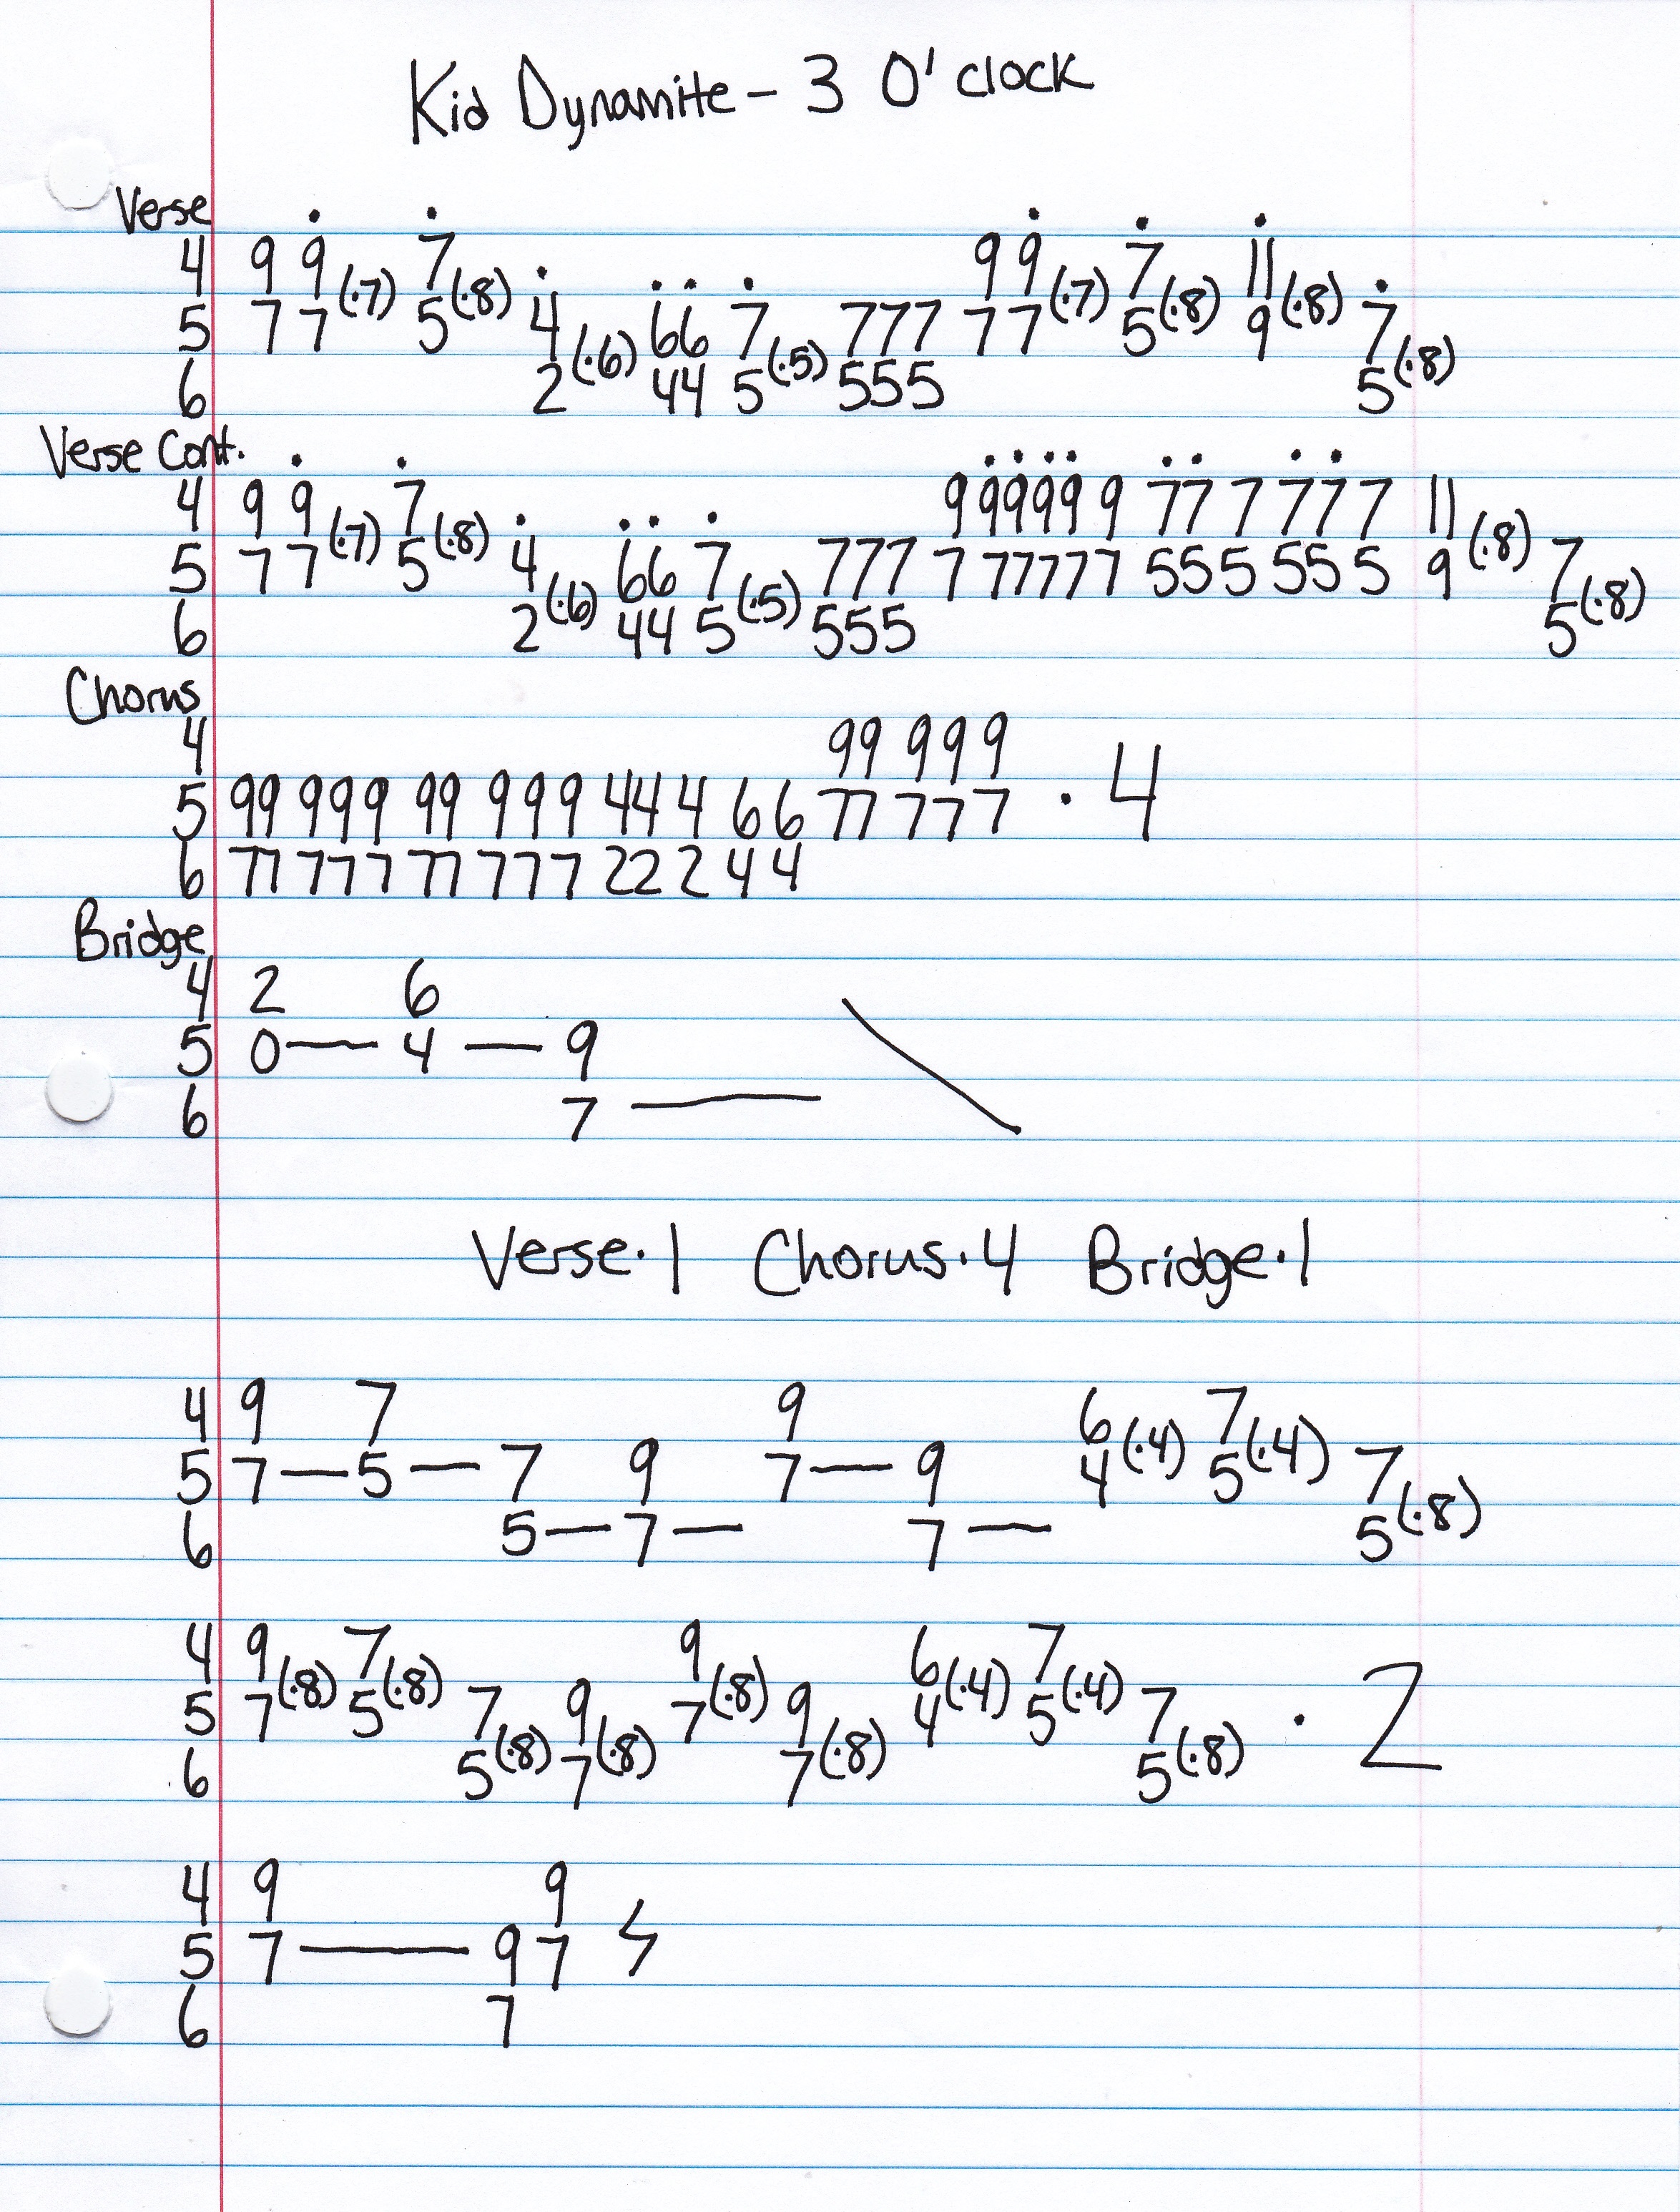 Kid Dynamite - 3 O'clock
Verse
4 9 9 7 9 9 7 11
5 7 7 (·7) 5 (·8) 4 66 7 777 7 7 (·7) 5 (·8) 9 (·8) 7
6 2 (·6) 44 5 (·5) 555 5 (·8)
Verse Cont.
4 9 9 7 9 9999 9 77 7 77 7 11
5 7 7 (·7) 5 (·8) 4 66 7 777 7 7777 7 55 5 55 5 9 (·8) 7
6 2 (·6) 44 5 (·5) 555 5 (·8)
Chorus
4 99 9 9 9
5 99 999 99 9 9 9 44 4 6 6 77 7 7 7 · 4
6 77 777 77 7 7 7 22 2 4 4
Bridge
4 2 6
5 0 — 4 — 9
6 7 —
Verse·1 Chorus·4 Bridge·1
4 9 7 9 6 7
5 7 — 5 — 7 9 7 — 9 4 (·4) 5 (·4) 7
6 5 — 7 — 7 — 5 (·8)
4 9 7 9 6 7
5 7 (·8) 5 (·8) 7 9 7 (·8) 9 4 (·4) 5 (·4) 7 · 2
6 5 (·8) 7 (·8) 7 (·8) 5 (·8)
4 9 9
5 7 — 9 7
6 7